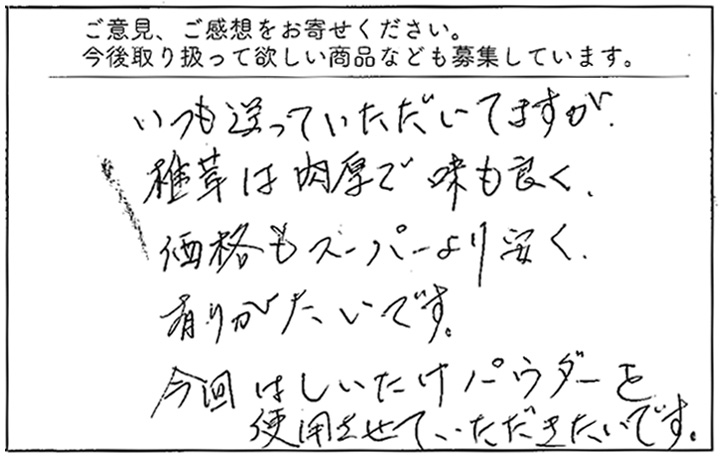 ご意見、ご感想をお寄せください。
今後取り扱って欲しい商品なども募集しています。
いつも送っていただいてますが、
椎茸は肉厚で味も良く、
価格もスーパーより安く、
有りがたいです。
今回はしいたけパウダーを
使用させていただきたいです。